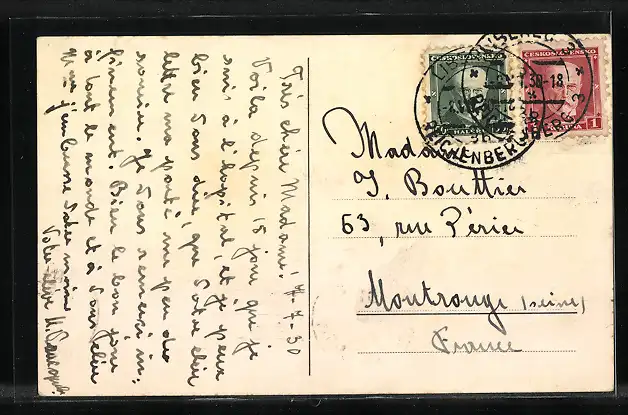 Très chéri Madame,
4-7-30
Voila depuis 15 jour que je
suis à l'hopital, et je peux
bien vous dire, que votre chér
lettre ma porté un peu de
. Je vous remerci in-
finiment. Bien le bon jour
à tout le monde et à vous
je embrasse votre
Votre élève H.
ČESKOSLOVENSKO
50
HALÉŘŮ
ČESKOSLOVENSKO
1
KORUNA
REICHENBERG
3
30-18
Madame
J. Bouttier
63, rue Périer
Montrouge (Seine)
France